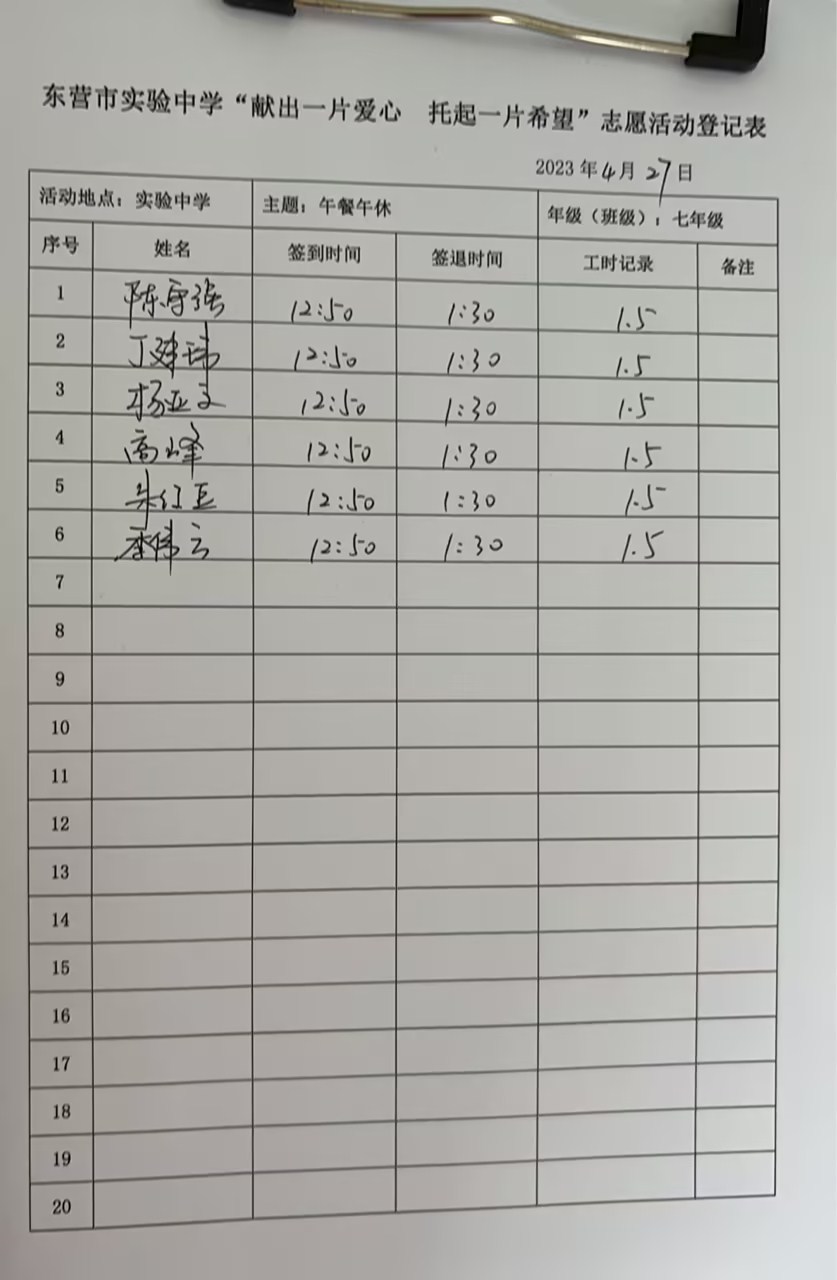 东营市实验中学“献出一片爱心 托起一片希望”志愿活动登记表
2023年4月27日
活动地点：实验中学 主题：午餐午休 年级（班级）：七年级
序号 姓名 签到时间 签退时间 工时记录 备注
1 陈守强 12:50 1:30 1.5
2 丁建玮 12:50 1:30 1.5
3 杨亚文 12:50 1:30 1.5
4 高峰 12:50 1:30 1.5
5 朱红 12:50 1:30 1.5
6 李伟云 12:50 1:30 1.5
7
8
9
10
11
12
13
14
15
16
17
18
19
20